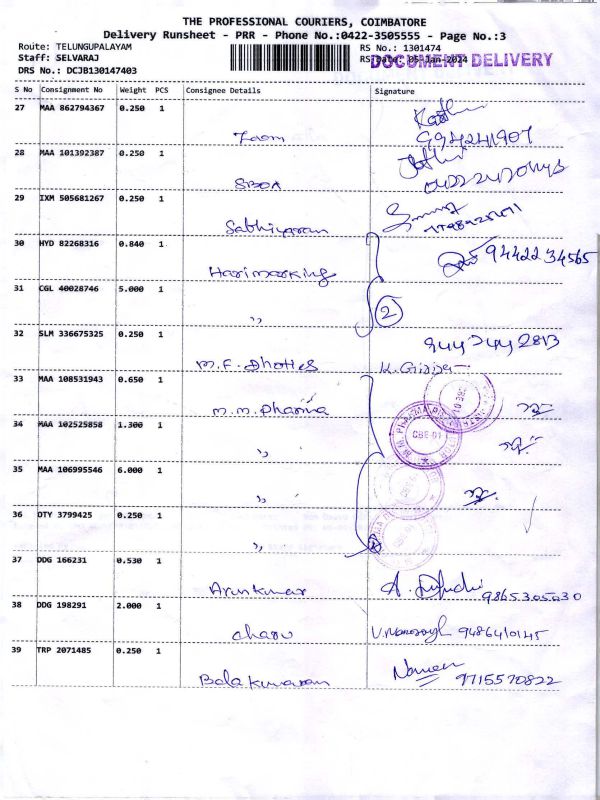 THE PROFESSIONAL COURIERS, COIMBATORE
Delivery Runsheet - PRR - Phone No.:0422-3505555 - Page No.:3
Route: TELUNGUPALAYAM RS No.: 1301474
Staff: SELVARAJ RS Date: 05-Jan-2024 DOCUMENT DELIVERY
DRS No.: DCJB130147403
S No Consignment No Weight PCS Consignee Details Signature
27 MAA 862794367 0.250 1
9942241907
28 MAA 101392387 0.250 1
29 IXM 505681267 0.250 1
30 HYD 82268316 0.840 1
9442234565
Harimarking
31 CGL 40028746 5.000 1
2
"
32 SLM 336675325 0.250 1
M.F. Dhoties
33 MAA 108531943 0.650 1
M.M. Pharma
34 MAA 102525858 1.300 1
CBE-01
"
35 MAA 106995546 6.000 1
"
36 DTY 3799425 0.250 1
"
37 DDG 166231 0.530 1
Arunkumar 9865305030
38 DDG 198291 2.000 1
charu 9486410145
39 TRP 2071485 0.250 1
Balakumaran 9715570822